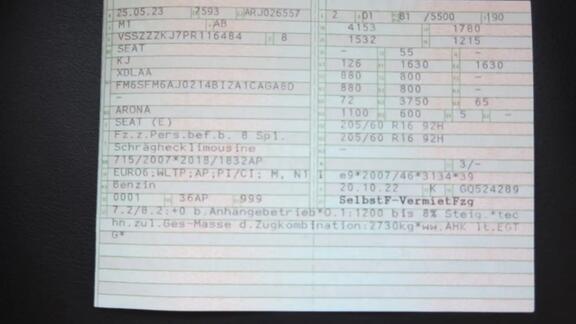 25.05.23 7593 ARJ026557
M1 AB
VSSZZZKJ7PR116484 8
SEAT
KJ
XDLAA
FM6SFM6AJ0214BI2A1CAGA8D
-
ARONA
SEAT (E)
Fz.z.Pers.bef.b. 8 Spl.
Schräghecklimousine
715/2007*2018/1832AP
EURO6;WLTP;AP;PI/CI; M, N1 I
Benzin
0001 36AP 999
2 01 81 /5500 190
4153 1780
1532 1215
- 55 -
126 1630 1630
880 800 -
880 800 -
72 3750 65
1100 600 5 -
205/60 R16 92H
205/60 R16 92H
-
- 3/-
e9*2007/46*3134*39
20.10.22 K GQ524289
SelbstF-VermietFzg
7.2/8.2:+0 b.Anhängebetrieb*O.1:1200 bis 8% Steig.*tec
hn.zul.Ges-Masse d.Zugkombination:2730kg*ww.AHK lt.EGT
G*